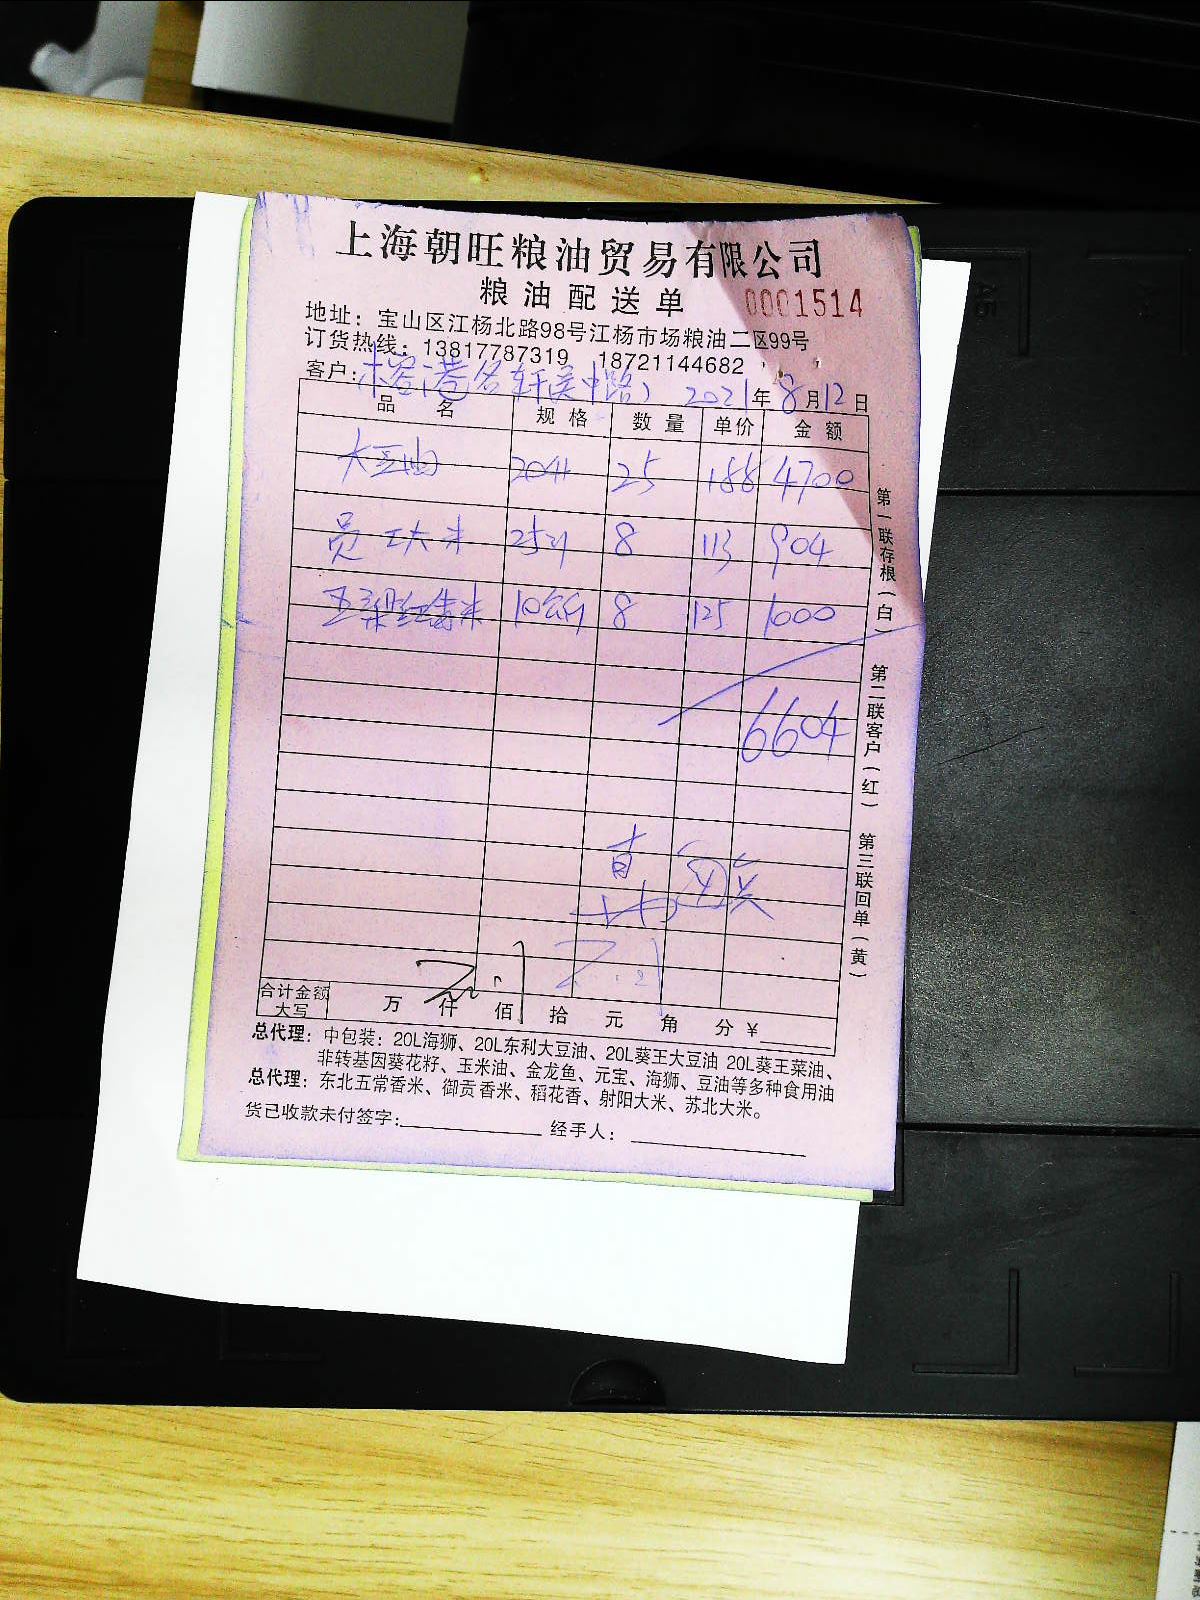 上海朝旺粮油贸易有限公司
粮油配送单 0001514
地址：宝山区江杨北路98号江杨市场粮油二区99号
订货热线：13817787319 18721144682
客户：榕港名轩(吴中路) 2021年8月12日
品名 规格 数量 单价 金额
大豆油 20升 25 188 4700
员工大米 25 8 113 904
10公斤 8 125 1000
6604
合计金额大写 万 仟 佰 拾 元 角 分 ¥
总代理：中包装：20L海狮、20L东利大豆油、20L葵王大豆油 20L葵王菜油、
非转基因葵花籽、玉米油、金龙鱼、元宝、海狮、豆油等多种食用油
总代理：东北五常香米、御贡香米、稻花香、射阳大米、苏北大米。
货已收款未付签字： 经手人：
第一联存根(白)
第二联客户(红)
第三联回单(黄)
A5